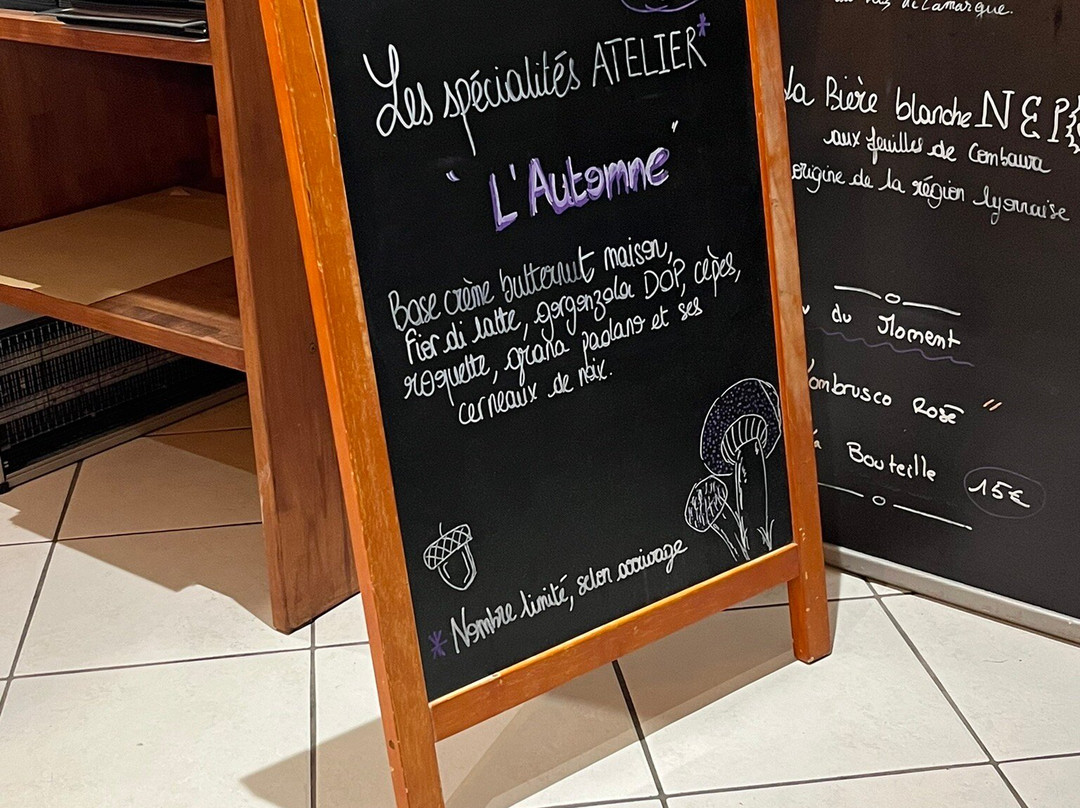 Les spécialités ATELIER*
"L'Automne"
Base crème butternut maison,
fior di latte, gorgonzola DOP, cèpes,
roquette, grana padano et ses
cerneaux de noix.
*Nombre limité, selon arrivage
de Lamarque.
La Bière blanche NEPO
aux feuilles de Combawa
origine de la région lyonnaise
du Moment
Lambrusco Rosé "
Bouteille 15€